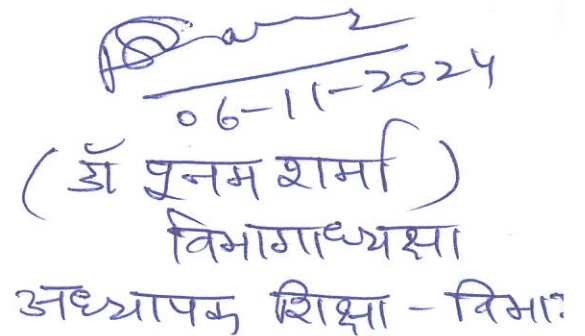 06-11-2024
(डॉ पूनम शर्मा)
विभागाध्यक्षा
अध्यापक शिक्षा -